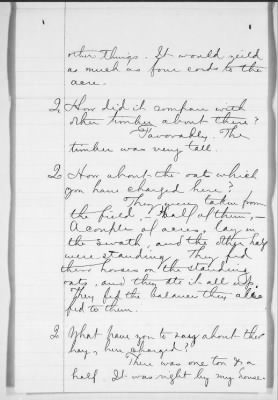 other things. It would yield
as much as four cords to the
acre.
Q How did it compare with
other timber about there?
Favorably. The
timber was very tall.
Q How about the oats which
you have charged here?
They were taken from
the field, - half of them, -
A couple of acres lay in
the swath, and the other half
were standing. They fed
their horses on the standing
oats, and they ate it all up.
They fed the balance they also
fed to them.
Q What have you to say about the
hay, here charged?
There was one ton & a
half. It was right by my house.